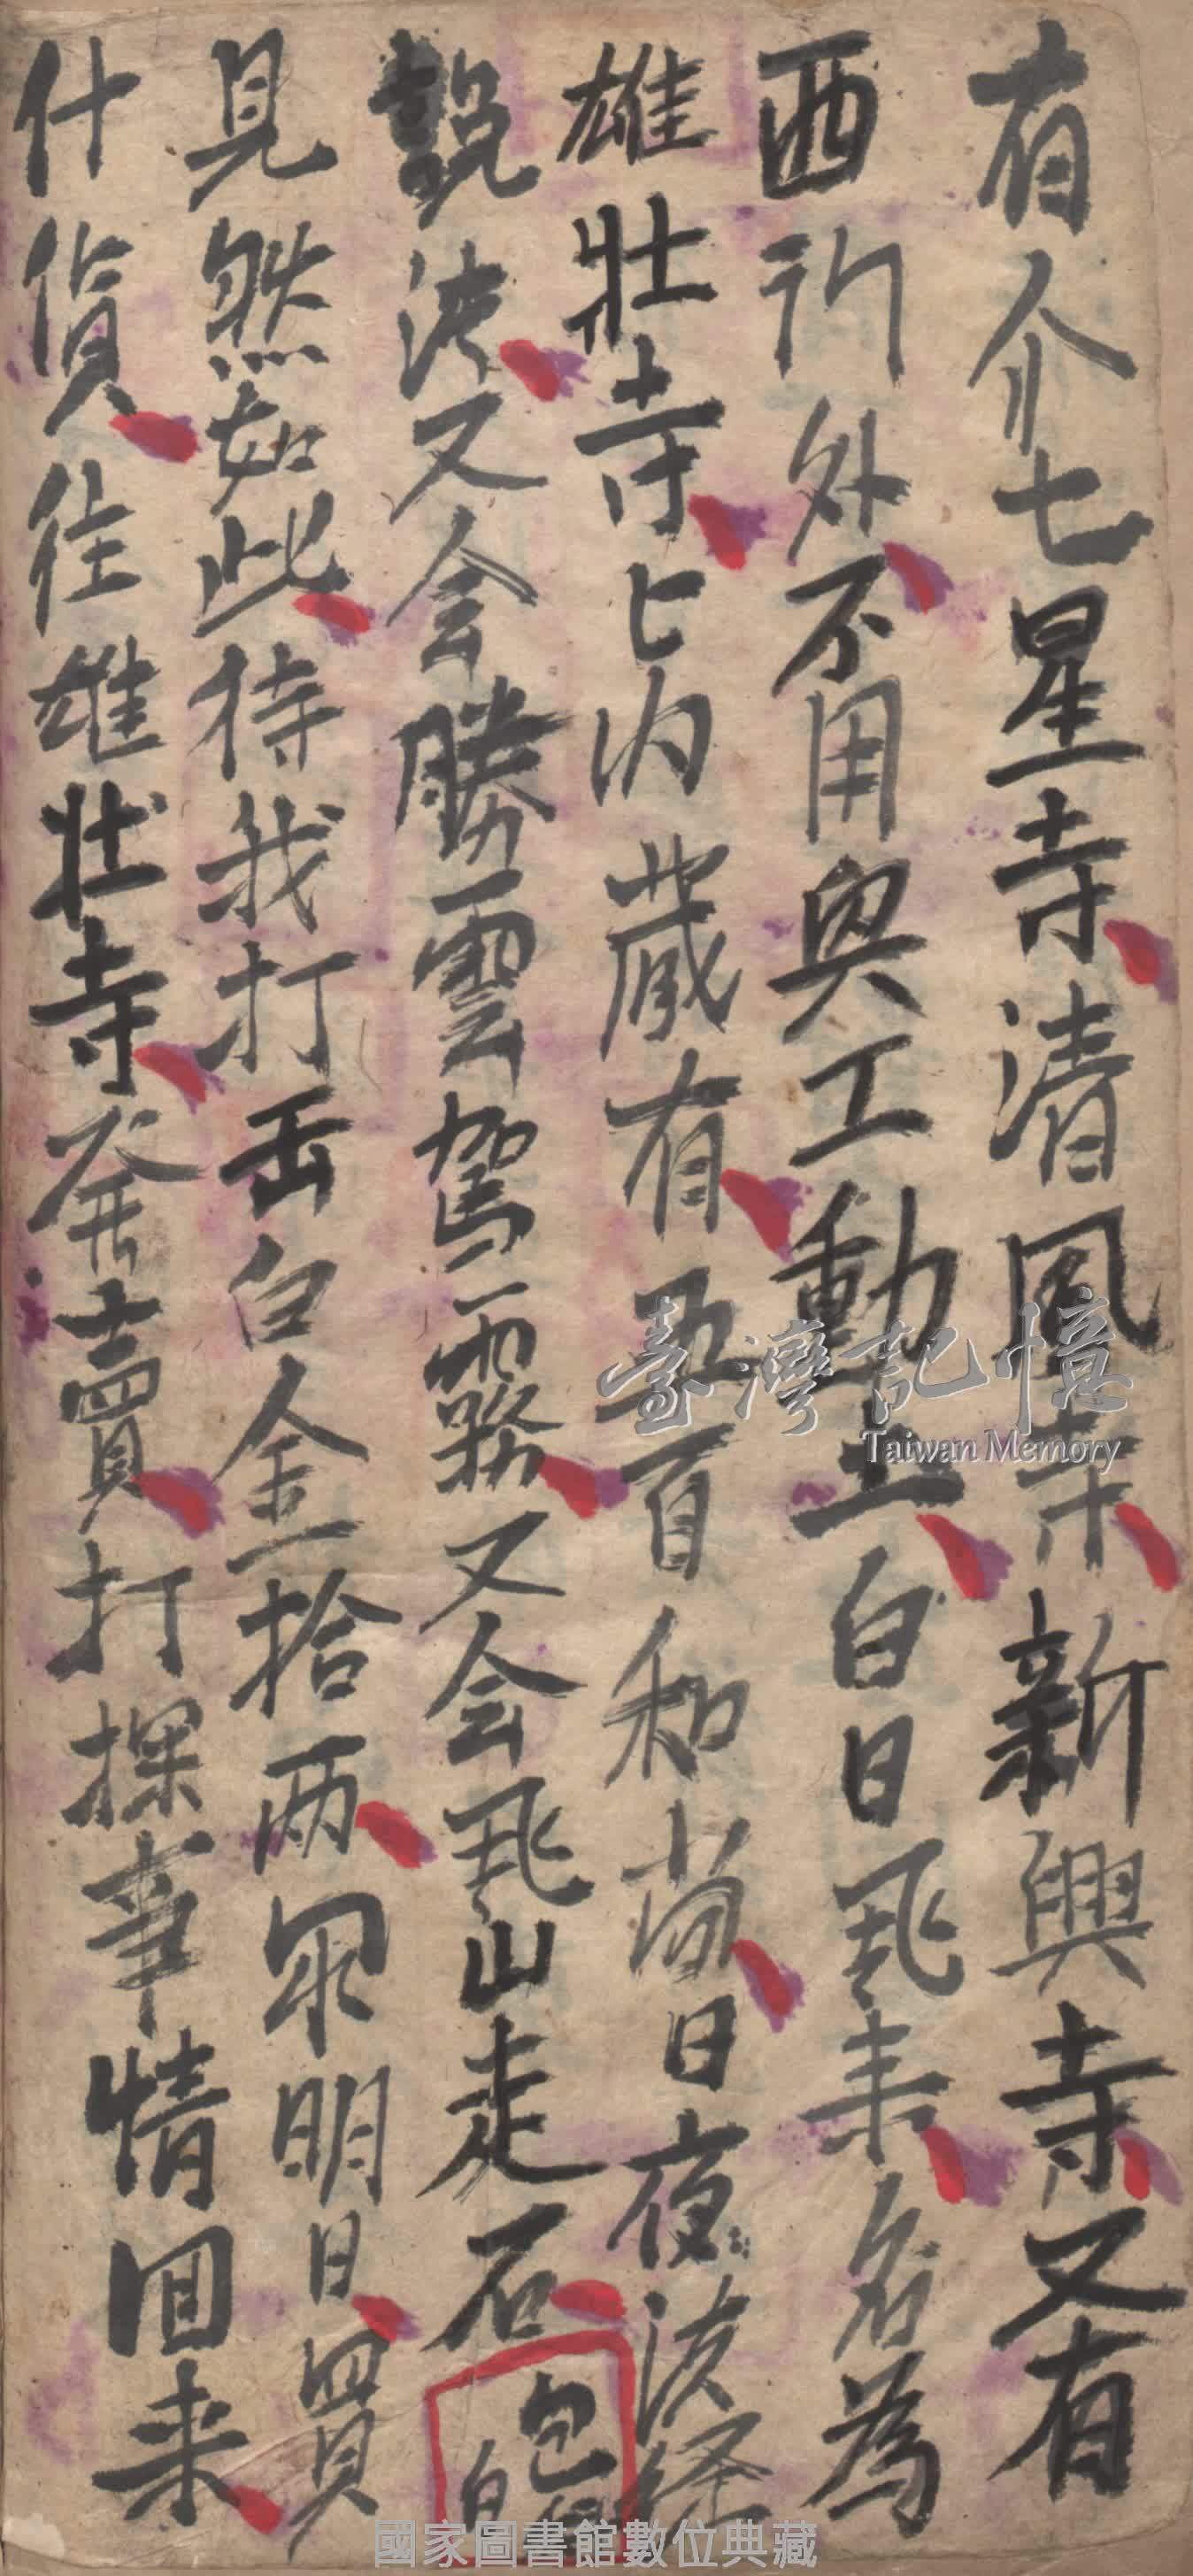 有介七星寺清風寺新興寺又有
西行外不用與工動土白日飛来名為
雄壯寺匕内藏有五百和尚日夜法経
説法又会勝雲駕霧又会飛山走石
包
見然如此待我打缶白金拾両眾明日買
什貨往雄壮寺發賣打探事情回来
臺灣記憶
Taiwan Memory
國家圖書館數位典藏